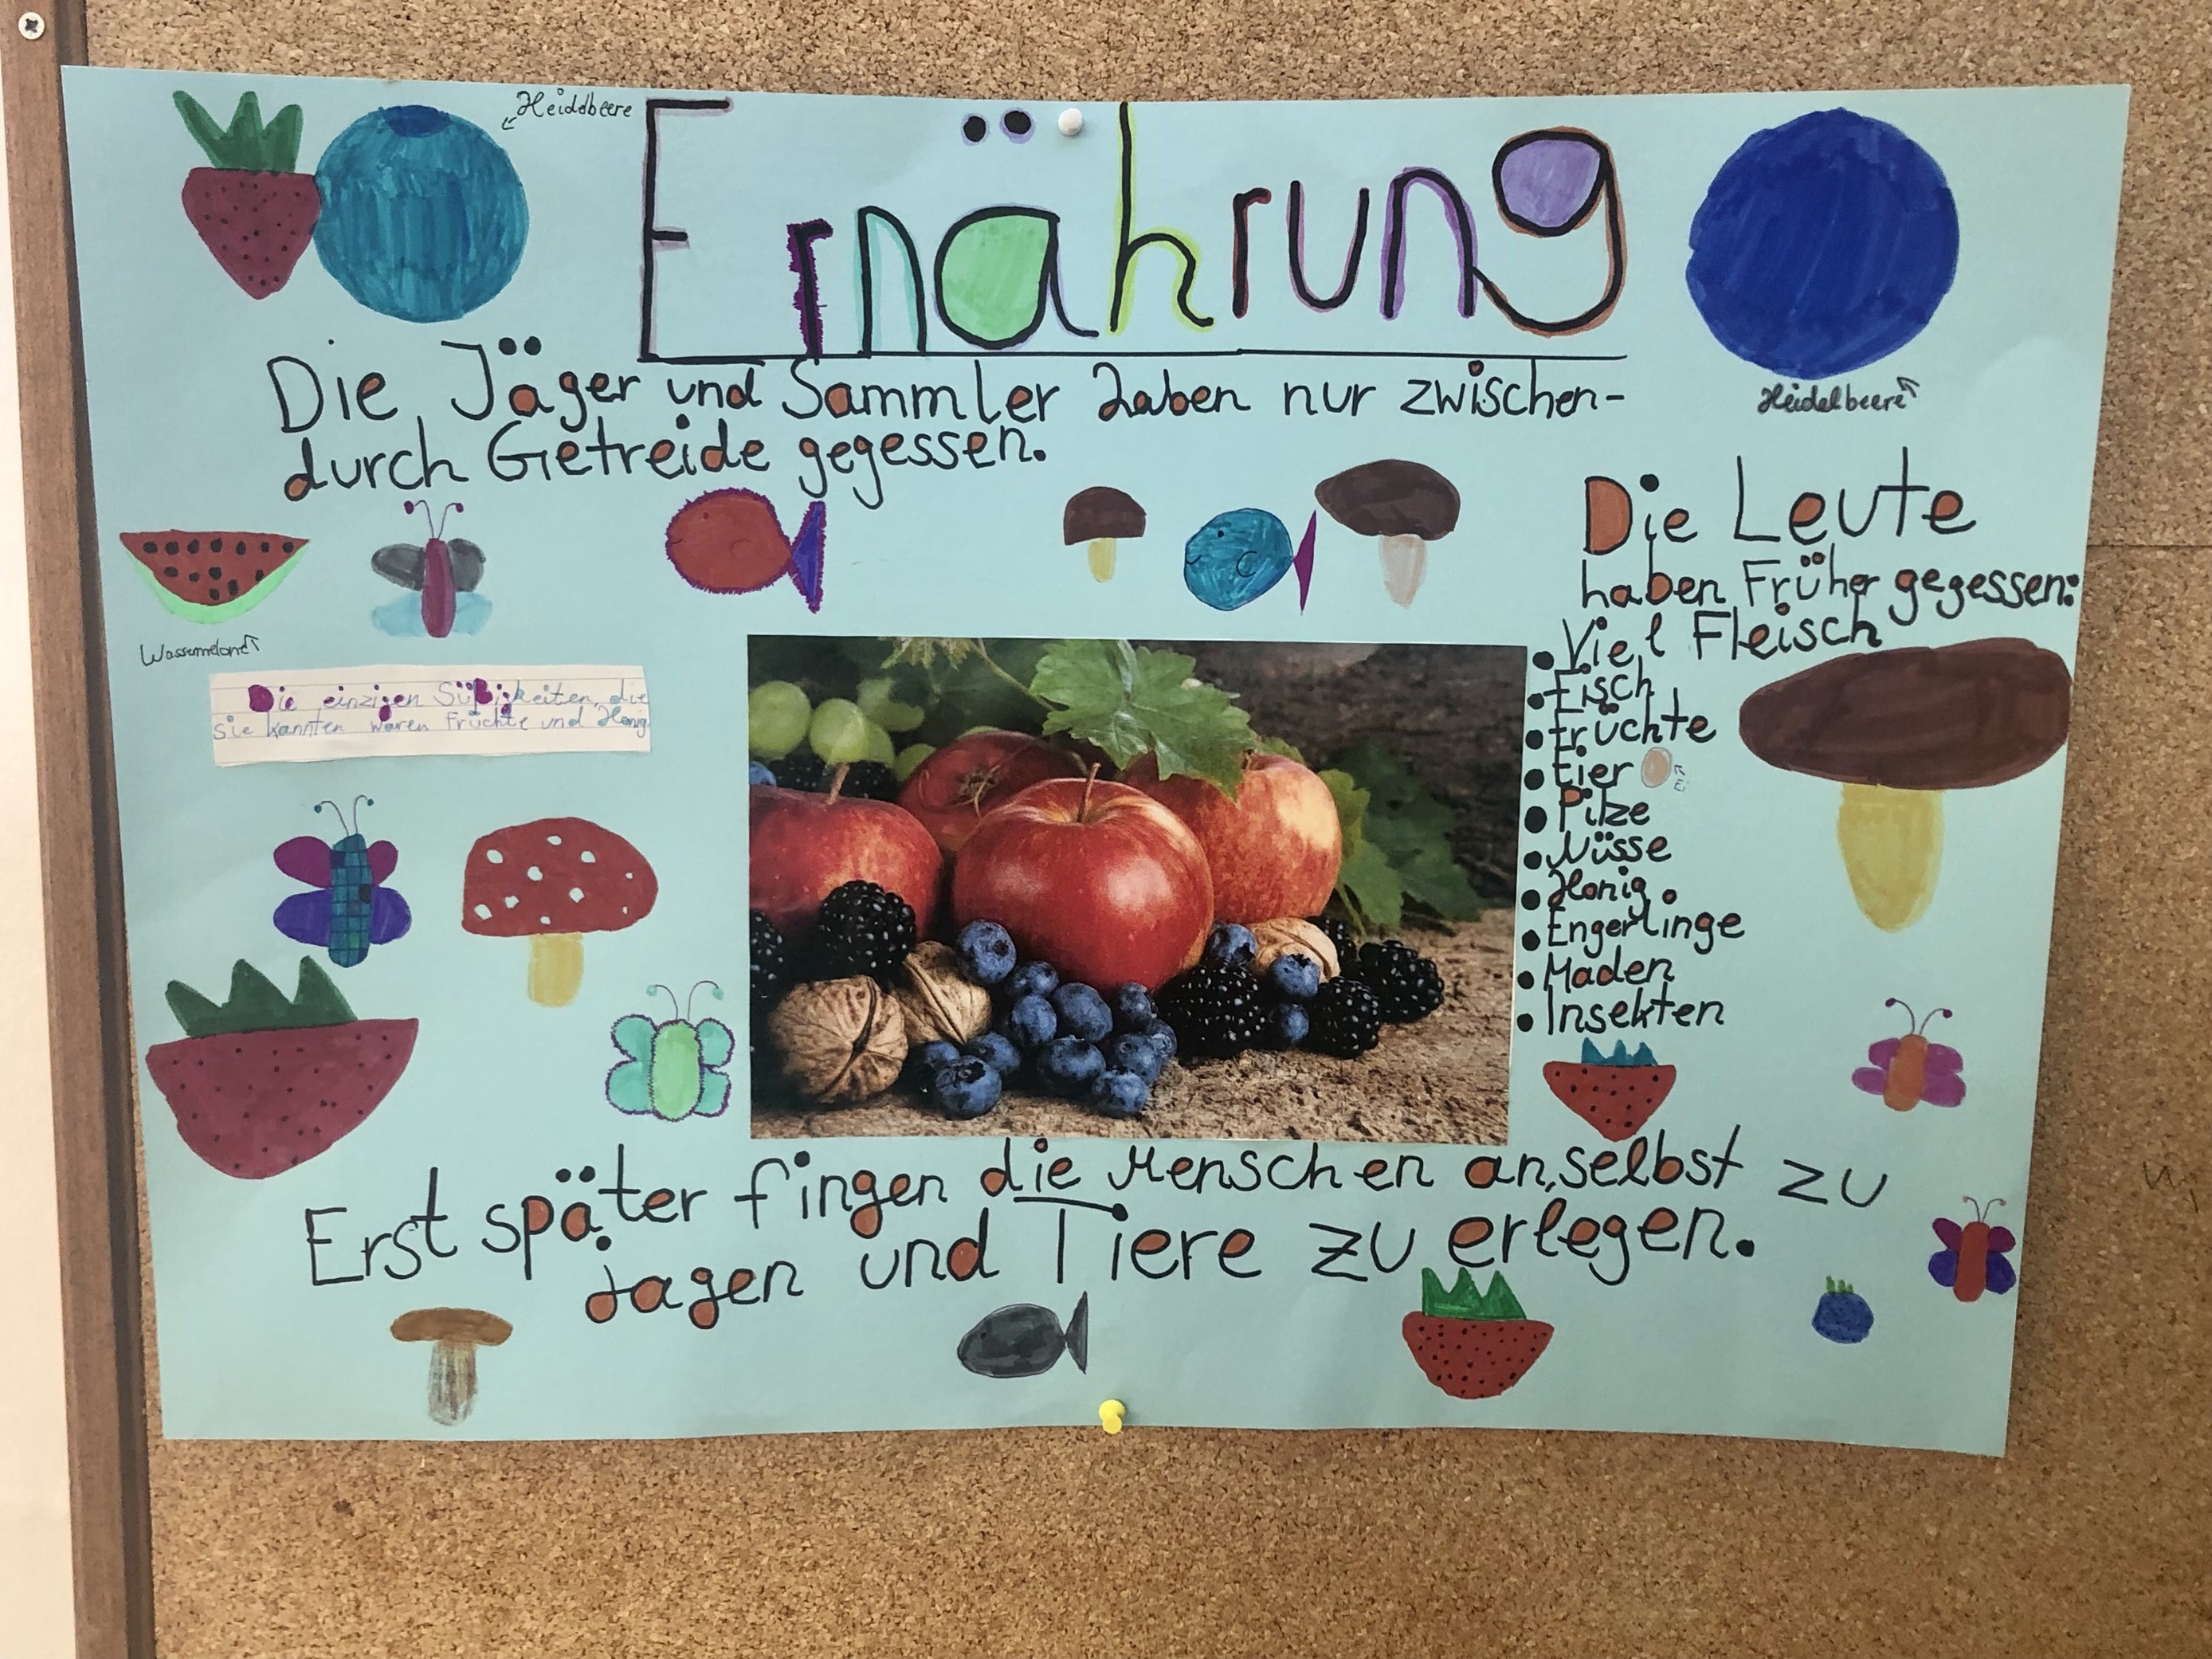 Heidelbeere
Ernährung
Heidelbeere
Die Jäger und Sammler haben nur zwischen-
durch Getreide gegessen.
Wassermelone
Die einzigen Süßigkeiten, die
sie kannten waren Früchte und Honig
Die Leute
haben Früher gegessen:
• Viel Fleisch
• Fisch
• Früchte
• Eier
Ei
• Pilze
• Nüsse
• Honig
• Engerlinge
• Maden
• Insekten
Erst später fingen die Menschen an, selbst zu
jagen und Tiere zu erlegen.